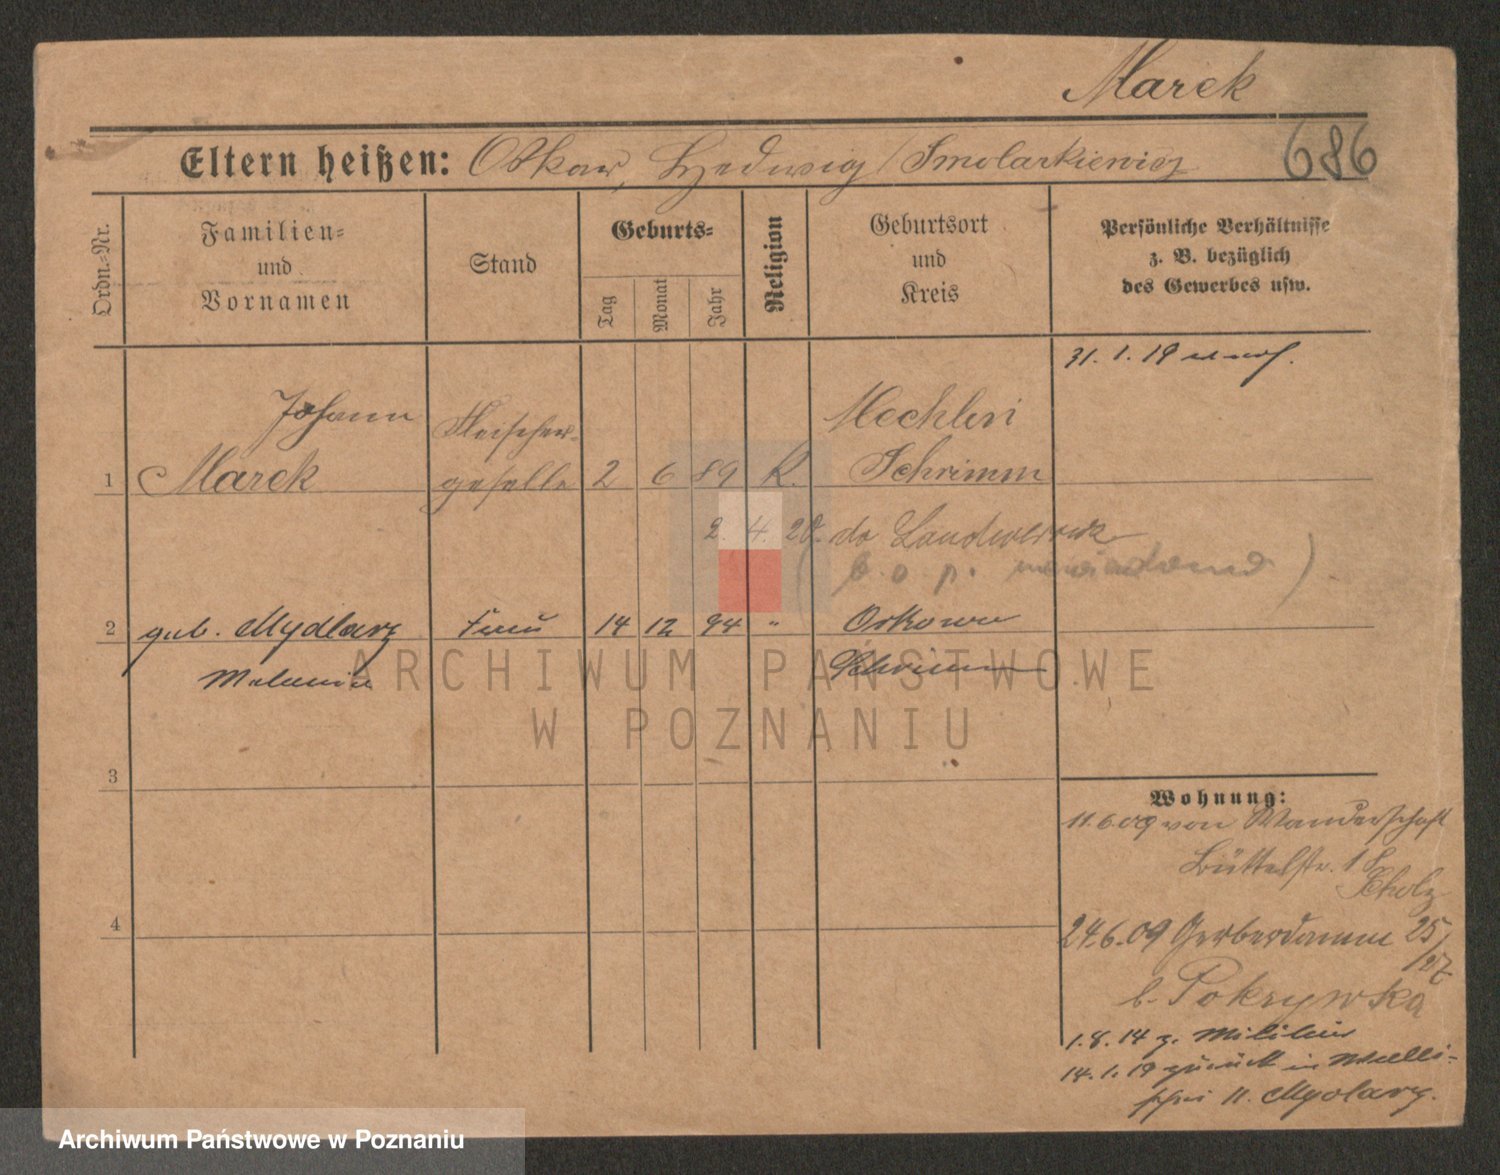 Marek
686
Eltern heißen: Oskar, Hedwig / Smolarkiewicz
Ordn.-Nr.
Familien-
und
Vornamen
Stand
Geburts-
Tag
Monat
Jahr
Religion
Geburtsort
und
Kreis
Persönliche Verhältnisse
z. B. bezüglich
des Gewerbes usw.
31. 1. 19
Johann Fleischer- Mechlin
1 Marek geselle 2 6 89 K. Schrimm
2. 4. 20.
2 geb. Mydlarz Frau 14 12 94 " Orkowo
Melania Schrimm
3
4
Wohnung:
11.6.09 von Wanderschaft
Büttelstr. 18
Scholz
24.6.09 Gerberdamm 25/27
b. Pokrywka
1.8.14 z. Militär
14.1.19 zurück in
11. Mydlarz.
ARCHIWUM PAŃSTWOWE
W POZNANIU
Archiwum Państwowe w Poznaniu